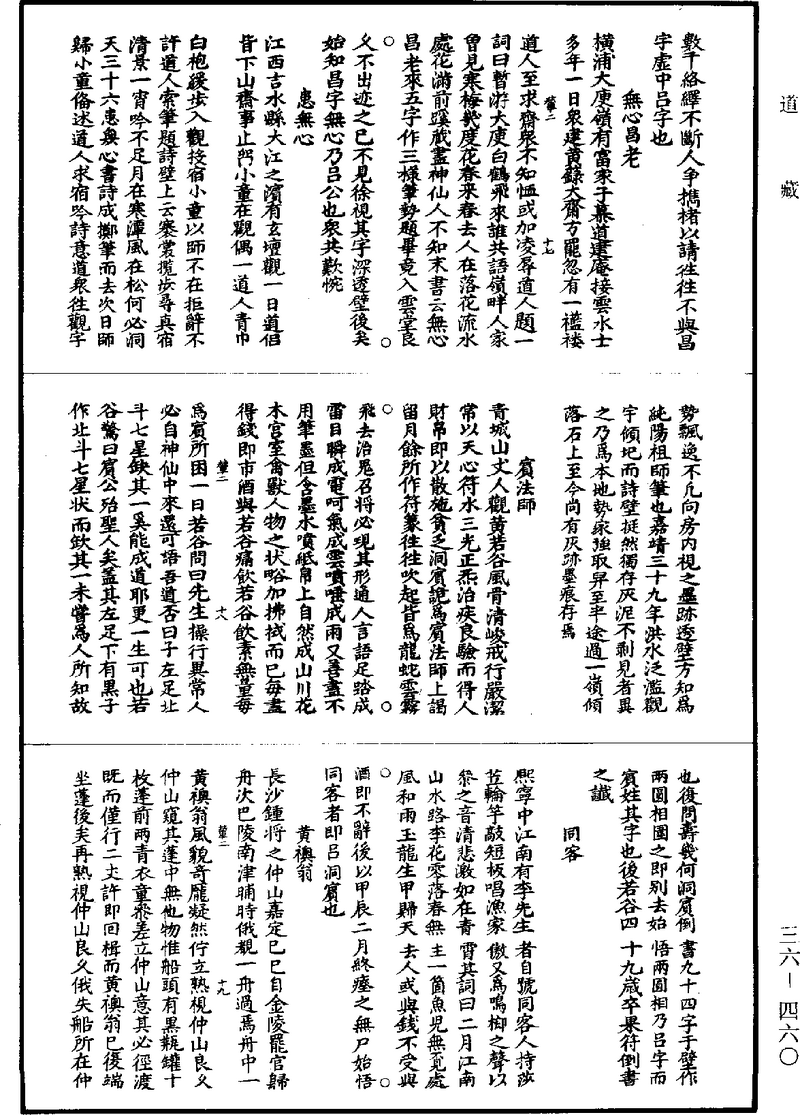 道藏
三六—四六〇
數千絡繹不斷人爭攜楮以請往往不與昌
字虛中呂字也
無心昌老
橫浦大庾嶺有富家子慕道建庵接雲水士
多年一日衆建黃籙大齋方罷忽有一襤褸
道人至求齋衆不知恤或加凌辱道人題一
詞曰暫游大庾白鶴飛來誰共語嶺畔人家
曾見寒梅幾度花春來春去人在落花流水
處花滿前蹊藏盡神仙人不知末書云無心
昌老來五字作三樣筆勢題畢竟入雲堂良
久不出迹之已不見徐視其字深透壁後矣
始知昌字無心乃呂公也衆共歎惋
惠無心
江西吉水縣大江之濱有玄壇觀一日道侶
皆下山齋事止留小童在觀偶一道人青巾
白袍緩步入觀投宿小童以師不在拒辭不
許道人索筆題詩壁上云褰裳攬步尋真宿
清景一宵吟不足月在寒潭風在松何必洞
天三十六惠無心書詩成擲筆而去次日師
歸小童備述道人求宿吟詩意道衆往觀字
勢飄逸不凡向房內視之墨跡透壁方知爲
純陽祖師筆也嘉靖三十九年洪水泛濫觀
宇傾圮而詩壁挺然獨存灰泥不剝見者異
之乃爲本地勢家強取舁至半途過一嶺傾
落石上至今尚有灰跡墨痕存焉
賓法師
青城山丈人觀黃若谷風骨清峻戒行嚴潔
常以天心符水三光正炁治疾良驗而得人
財帛即以散施貧乏洞賓詭爲賓法師上謁
留月餘所作符篆往往吹起皆爲龍蛇雲霧
飛去治鬼召將必現其形通人言語足踏成
雷目瞬成電呵氣成雲噴嚏成雨又善畫不
用筆墨但含墨水噴紙帛上自然成山川花
木宮室禽獸人物之狀略加拂拭而已每畫
得錢即市酒與若谷痛飲若谷飲素無量每
爲賓所困一日若谷問曰先生操行異常人
必自神仙中來還可語吾道否曰子左足北
斗七星缺其一奚能成道耶更一生可也若
谷驚曰賓公殆聖人矣蓋其左足下有黑子
作北斗七星狀而欽其一未嘗爲人所知故
也復問壽幾何洞賓倒書九十四字于壁作
兩圓相圍之即別去始悟兩圓相乃呂字而
賓姓其字也後若谷四十九歲卒果符倒書
之讖
同客
熙寧中江南有李先生者自號同客人持莎
笠輪竿敲短板唱漁家傲又爲鳴榔之聲以
參之音清悲激如在青霄其詞曰二月江南
山水路李花零落春無主一箇魚兒無覓處
風和雨玉龍生甲歸天去人或與錢不受與
酒即不辭後以甲辰二月終瘞之無尸始悟
同客者即呂洞賓也
黃襖翁
長沙鍾將之仲山嘉定己巳自金陵罷官歸
舟次巴陵南津晡時俄覩一舟過焉舟中一
黃襖翁風貌奇龐凝然佇立熟視仲山良久
仲山窺其蓬中無他物惟船頭有黑瓶罐十
枚蓬前兩青衣童參差立仲山意其必徑渡
既而僅行二丈許即回楫而黃襖翁已復端
坐蓬後矣再熟視仲山良久俄失船所在仲